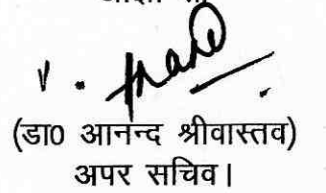 (डा0 आनन्द श्रीवास्तव)
अपर सचिव।